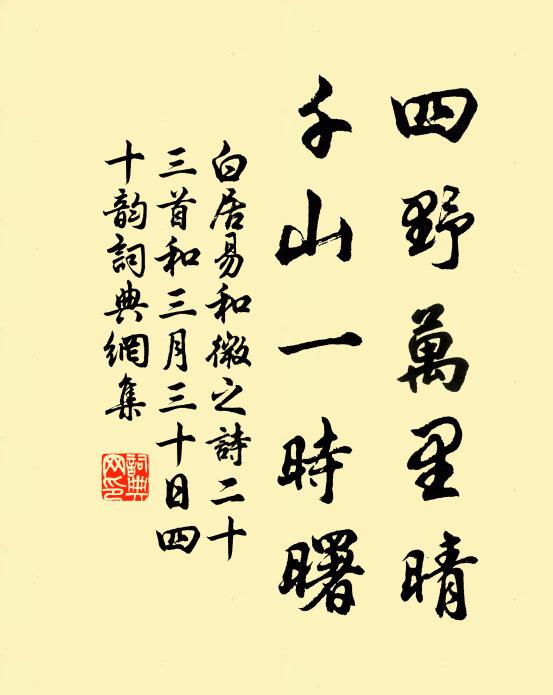 四野萬里晴
千山一時曙
白居易和微之詩二十
三首和三月三十日四
十韵詞典網集
詞典
网印